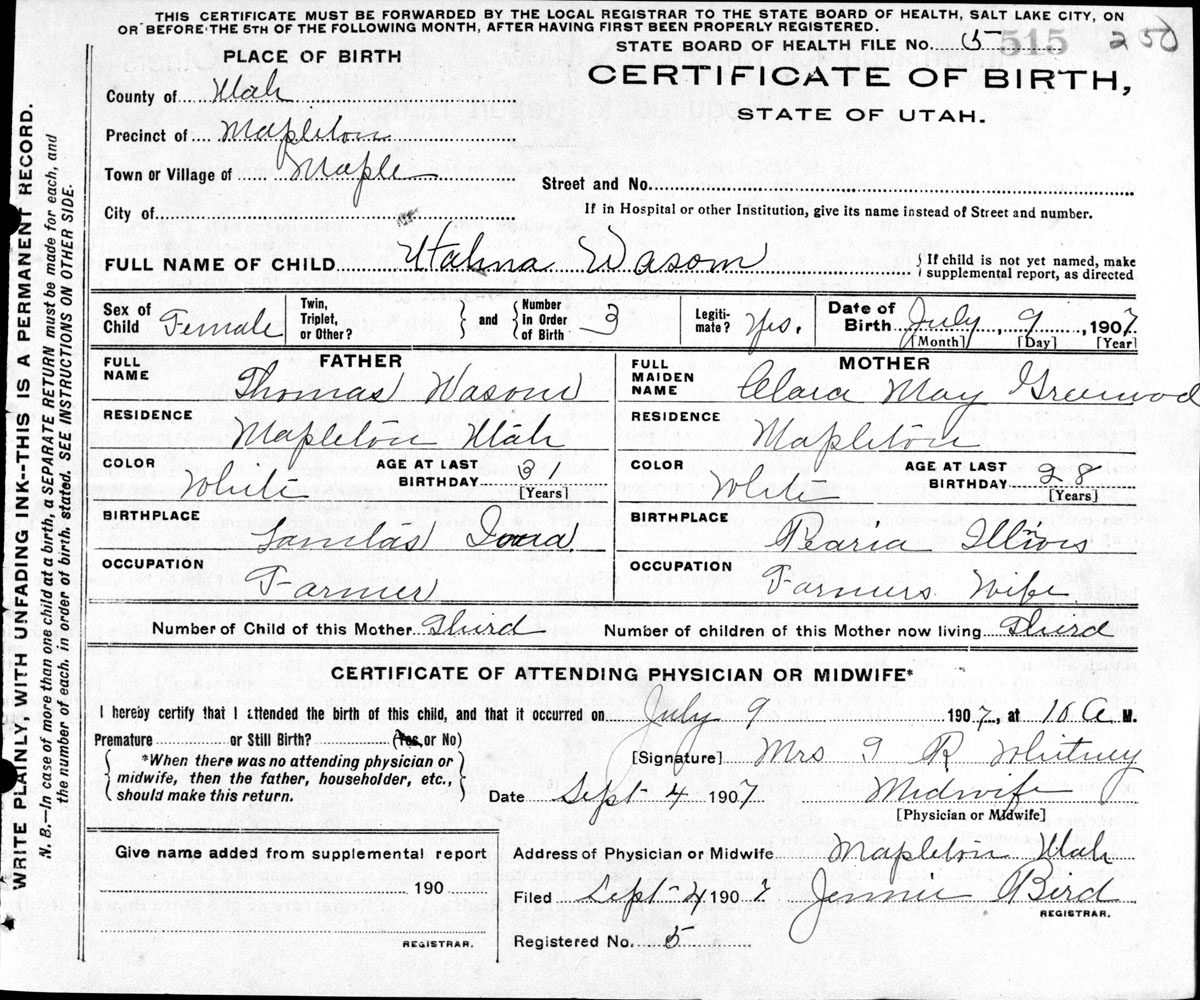 THIS CERTIFICATE MUST BE FORWARDED BY THE LOCAL REGISTRAR TO THE STATE BOARD OF HEALTH, SALT LAKE CITY, ON
OR BEFORE THE 5TH OF THE FOLLOWING MONTH, AFTER HAVING FIRST BEEN PROPERLY REGISTERED.
PLACE OF BIRTH
STATE BOARD OF HEALTH FILE No. 5 515 250
County of Utah
CERTIFICATE OF BIRTH,
STATE OF UTAH.
Precinct of Mapleton
Town or Village of Maple
Street and No.
City of
If in Hospital or other Institution, give its name instead of Street and number.
FULL NAME OF CHILD Utahna Wasom { If child is not yet named, make
supplemental report, as directed
Sex of Child Female
Twin, Triplet, or Other? } and { Number In Order of Birth 3
Legiti- mate? Yes.
Date of Birth July, 9, 1907
[Month] [Day] [Year]
FATHER
FULL NAME Thomas Wasom
RESIDENCE
Mapleton Utah
COLOR White AGE AT LAST BIRTHDAY 31 [Years]
BIRTHPLACE
Iowa.
OCCUPATION
Farmer
MOTHER
FULL MAIDEN NAME Clara May Greenwood
RESIDENCE
Mapleton
COLOR White AGE AT LAST BIRTHDAY 28 [Years]
BIRTHPLACE
Pearia Illinois
OCCUPATION
Farmers Wife
Number of Child of this Mother Third Number of children of this Mother now living Third
CERTIFICATE OF ATTENDING PHYSICIAN OR MIDWIFE*
I hereby certify that I attended the birth of this child, and that it occurred on July 9 1907, at 10 A M.
Premature or Still Birth? (Yes, or No)
*When there was no attending physician or
midwife, then the father, householder, etc.,
should make this return.
[Signature] Mrs R Whitney
Date Sept 4 1907 Midwife
[Physician or Midwife]
Give name added from supplemental report
190
REGISTRAR.
Address of Physician or Midwife Mapleton Utah
Filed Sept 4 1907 Jennie Bird
REGISTRAR.
Registered No. 5
WRITE PLAINLY, WITH UNFADING INK--THIS IS A PERMANENT RECORD.
N. B.—In case of more than one child at a birth, a SEPARATE RETURN must be made for each, and
the number of each, in order of birth, stated. SEE INSTRUCTIONS ON OTHER SIDE.